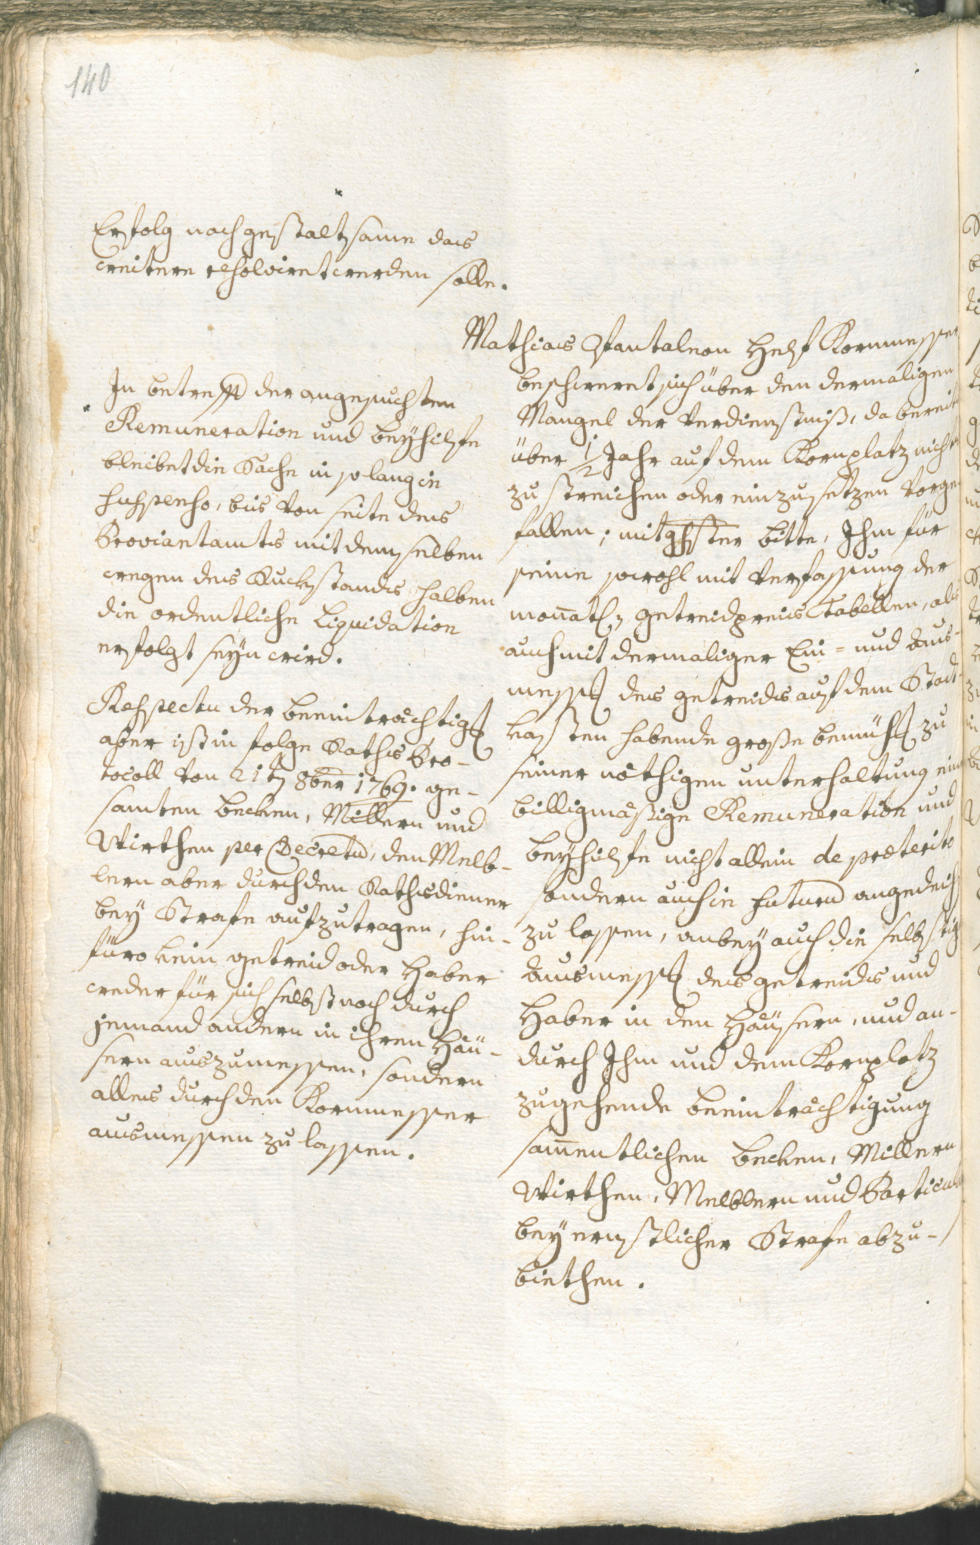 140
Erfolg nach gestaltsame das
weitere resolviret werden solle.
In betreff der angesuchten
Remuneration und beyhilfe
bleibet die Sache in so lang in
suspenso, bis von seite des
Proviantamts mit demselben
wegen des Ruckstands halben
die ordentliche Liquidation
erfolgt seyn wird.
Respectu der beeinträchtig
aber ist in folge Raths Pro-
tocoll von 21t 8ber 1769. ge-
samten becken, Millern und
Wirthen per Decretu, den Melb-
lern aber durch den Rathsdiener
bey Strafe aufzutragen, hin-
füro kein getreid oder Haber
weder für sich selbst noch durch
jemand andern in ihren Häu-
sern auszumessen, sondern
alles durch den Kornmesser
ausmessen zu lassen.
Mathias Pantaleon Helf Kornmesser
beschweret sich über den dermaligen
Mangel der Verdienstniß, da bereits
über 1/2 Jahr auf dem Kornplatz nichts
zu streichen oder einzusetzen vorge
fallen; mit ghster bitte, Ihm für
seine sowohl mit Verfassung der
monatl. getreidpreis Tabellen, als
auch mit dermaliger Ein= und Aus-
mess des getreids auf dem Stadt
kasten habende große bemüh zu
seiner nöthigen unterhaltung ein
billigmäßige Remuneration und
beyhilfe nicht allein de præterito
sondern auch in futuru angedeih
zu lassen, anbey auch die selbstig
Ausmess des getreids und
Haber in den Häusern, und an-
durch Ihm und dem Kornplatz
zugehende beeinträchtigung
samentlichen becken, Millern
Wirthen, Melblern und Particul
bey ernstlicher Strafe abzu-
biethen.